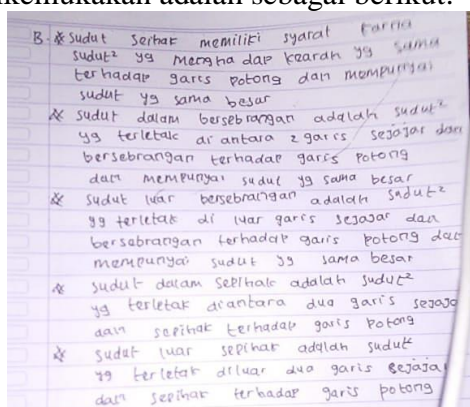 kemukakan adalah sebagai berikut:
B. * Sudut Serhak memiliki syarat karna
sudut² yg menghadap kearah yg sama
terhadap garis potong dan mempunyai
sudut yg sama besar
* Sudut dalam bersebrangan adalah sudut²
yg terletak di antara 2 garis sejajar dan
bersebrangan terhadap garis potong
dan mempunyai sudut yg sama besar
* Sudut luar bersebrangan adalah sudut²
yg terletak di luar garis sejajar dan
bersabrangan terhadap garis potong dan
mempunyai sudut yg sama besar
* sudut dalam sepihak adalah sudut²
yg terletak diantara dua garis sejaja
dan sepihak terhadap garis potong
* sudut luar sepihak adalah sudut
yg terletak diluar dua garis sejaja
dan sepihak terhadap garis potong